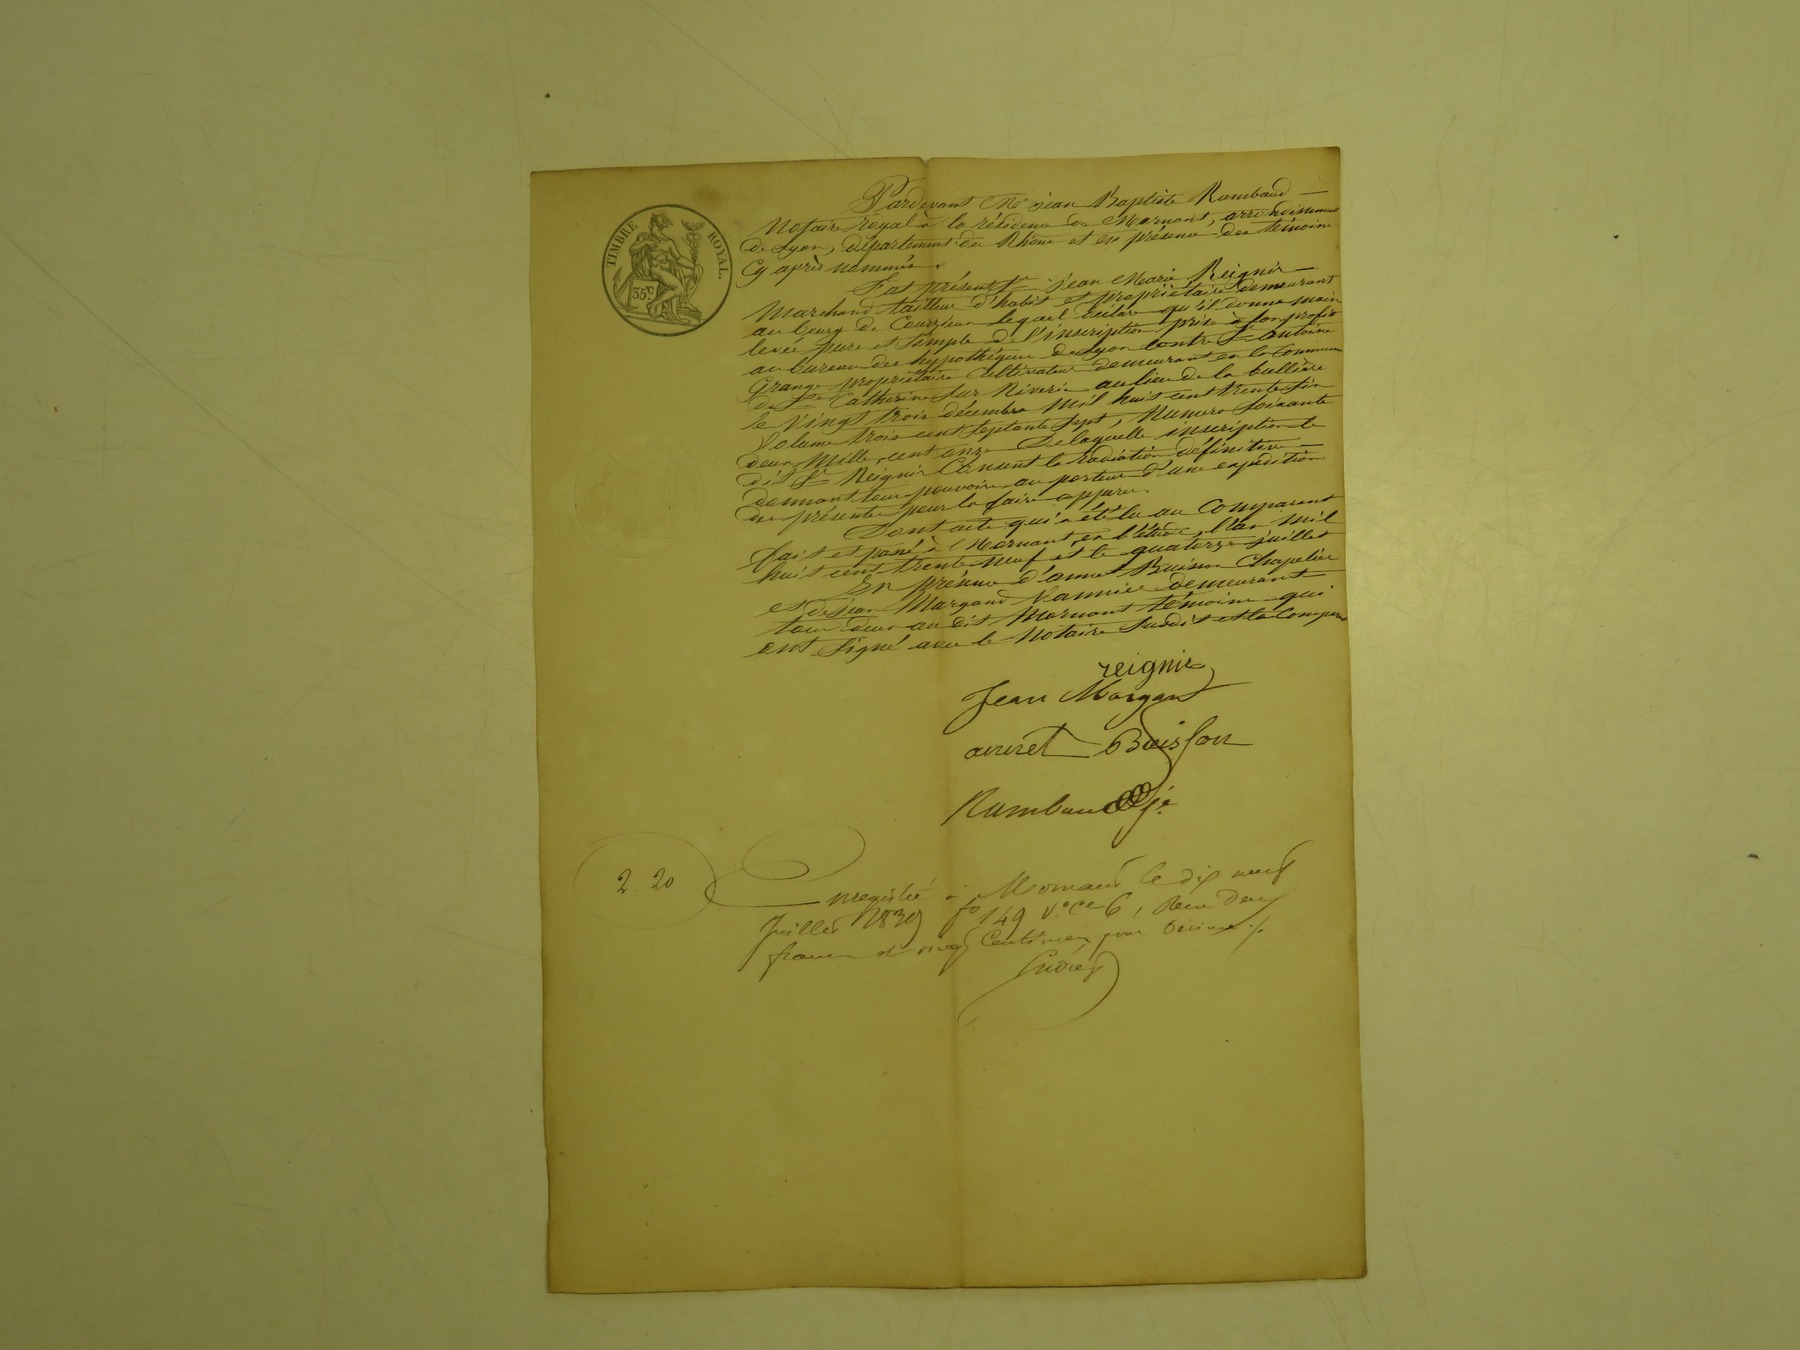 TIMBRE ROYAL.
35c.
Pardevant Me jean Baptiste Rambaud
Notaire royal à la résidence de Mornant, arrondissement
de Lyon, département du Rhône et en présence des témoins
Cy après nommés.
Fut présent Sr Jean Marie Reignir
Marchand tailleur d'habit et propriétaire demeurant
au bourg de Courzieu lequel déclare qu'il donne main
levée pure et simple de l'inscription prise à son profit
au bureau des hypothéques de Lyon contre Sr antoine
Grange propriétaire Cultivateur demeurant en la Commune
de Ste Catherine sur Riverie au lieu de la bullière
le vingt trois décembre mil huit cent trente six
Volume trois cent septante sept, Numero soixante
deux mille cent onze De laquelle inscription le
dit Sr Reignir Consent la radiation définitive
donnant tous pouvoirs au porteur d'une expédition
des présentes pour la faire opperer.
Dont acte qui a été lu au Comparant
fait et passé à Mornant en l'étude, l'an mil
huit cent trente neuf et le quatorze juillet
En présence d'annet Buisson Chapelier
et de jean Margand Vannier demeurant
tous deux au dit Mornant témoins qui
ont signé avec le Notaire susdit et le Compar
reignir
Jean Margant
annet Buisson
Rambaud
2. 20
Enregistré à Mornant le dix neuf
Juillet 1839 fo 149 Vo Ce 6, Reçu deux
francs et vingt Centimes pour Décime